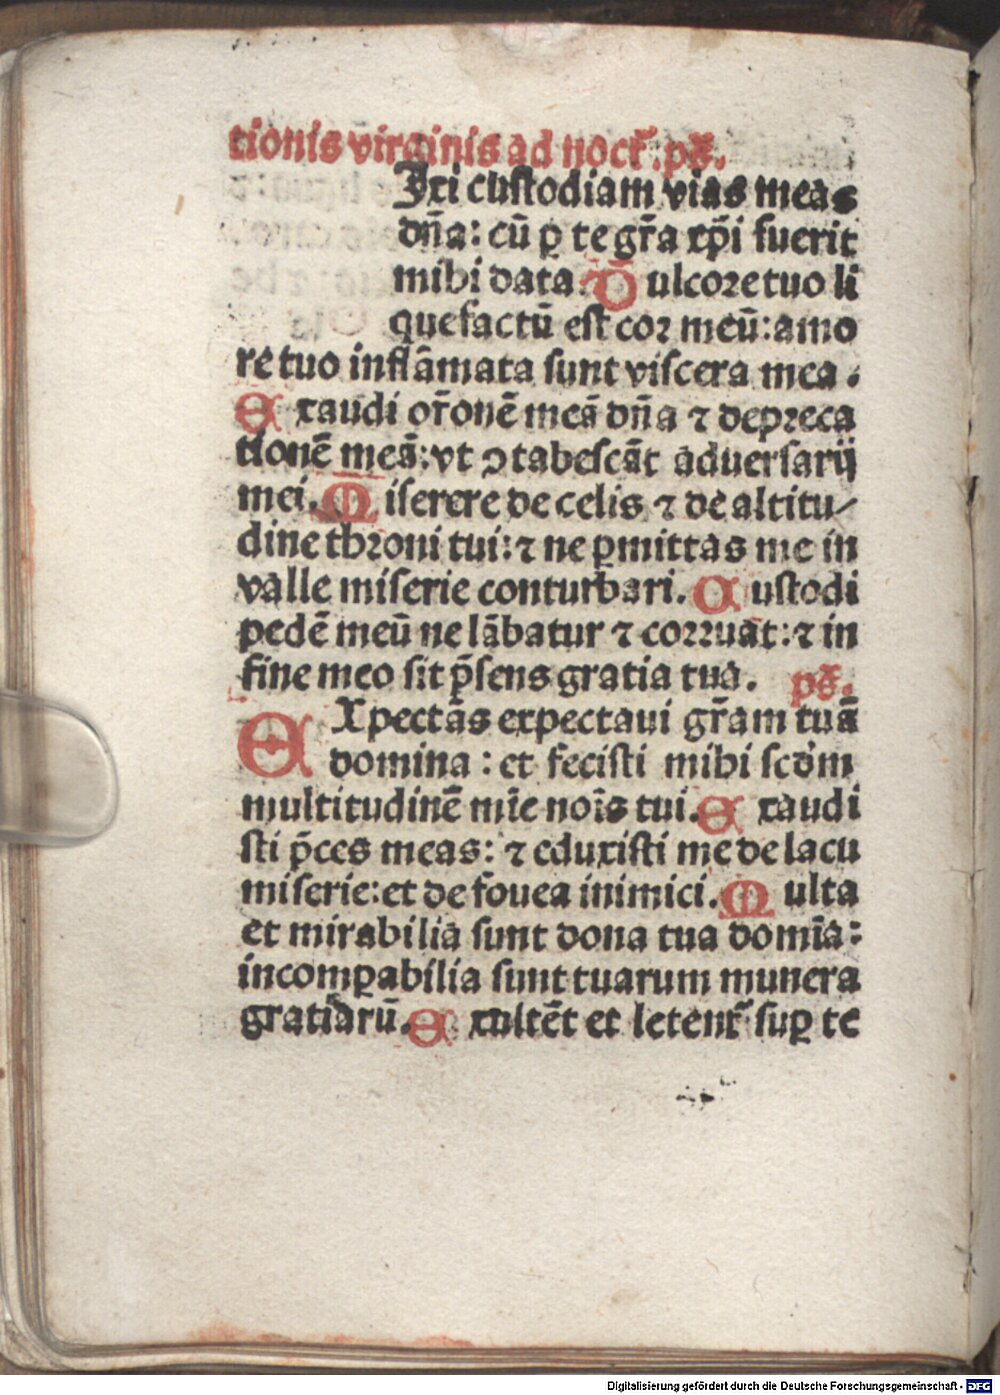 tionis virginis ad noct᷑. ps̄.
Ixi custodiam vias meas
dn̄a: cū ꝑ te gr̄a xp̄i fuerit
mihi data. D ulcore tuo li
quefactū est cor meū: amo
re tuo inflāmata sunt viscera mea.
E xaudi or̄onē meā dn̄a ⁊ depreca
tionē meā: vt ꝯtabescāt aduersarij
mei. M iserere de celis ⁊ de altitu/
dine throni tui: ⁊ ne ꝑmittas me in
valle miserie conturbari. C ustodi
pedē meū ne lābatur ⁊ corruat: ⁊ in
fine meo sit p̄sens gratia tua. ps̄.
E Xpectās expectaui gr̄am tuā
domina: et fecisti mihi scd̄m
multitudinē mīe noīs tui. E xaudi
sti p̄ces meas: ⁊ eduxisti me de lacu
miserie: et de fouea inimici. M ulta
et mirabilia sunt dona tua domīa:
incomꝑabilia sunt tuarum munera
gratiarū. E xultēt et letent᷑ suꝑ te
Digitalisierung gefördert durch die Deutsche Forschungsgemeinschaft - DFG